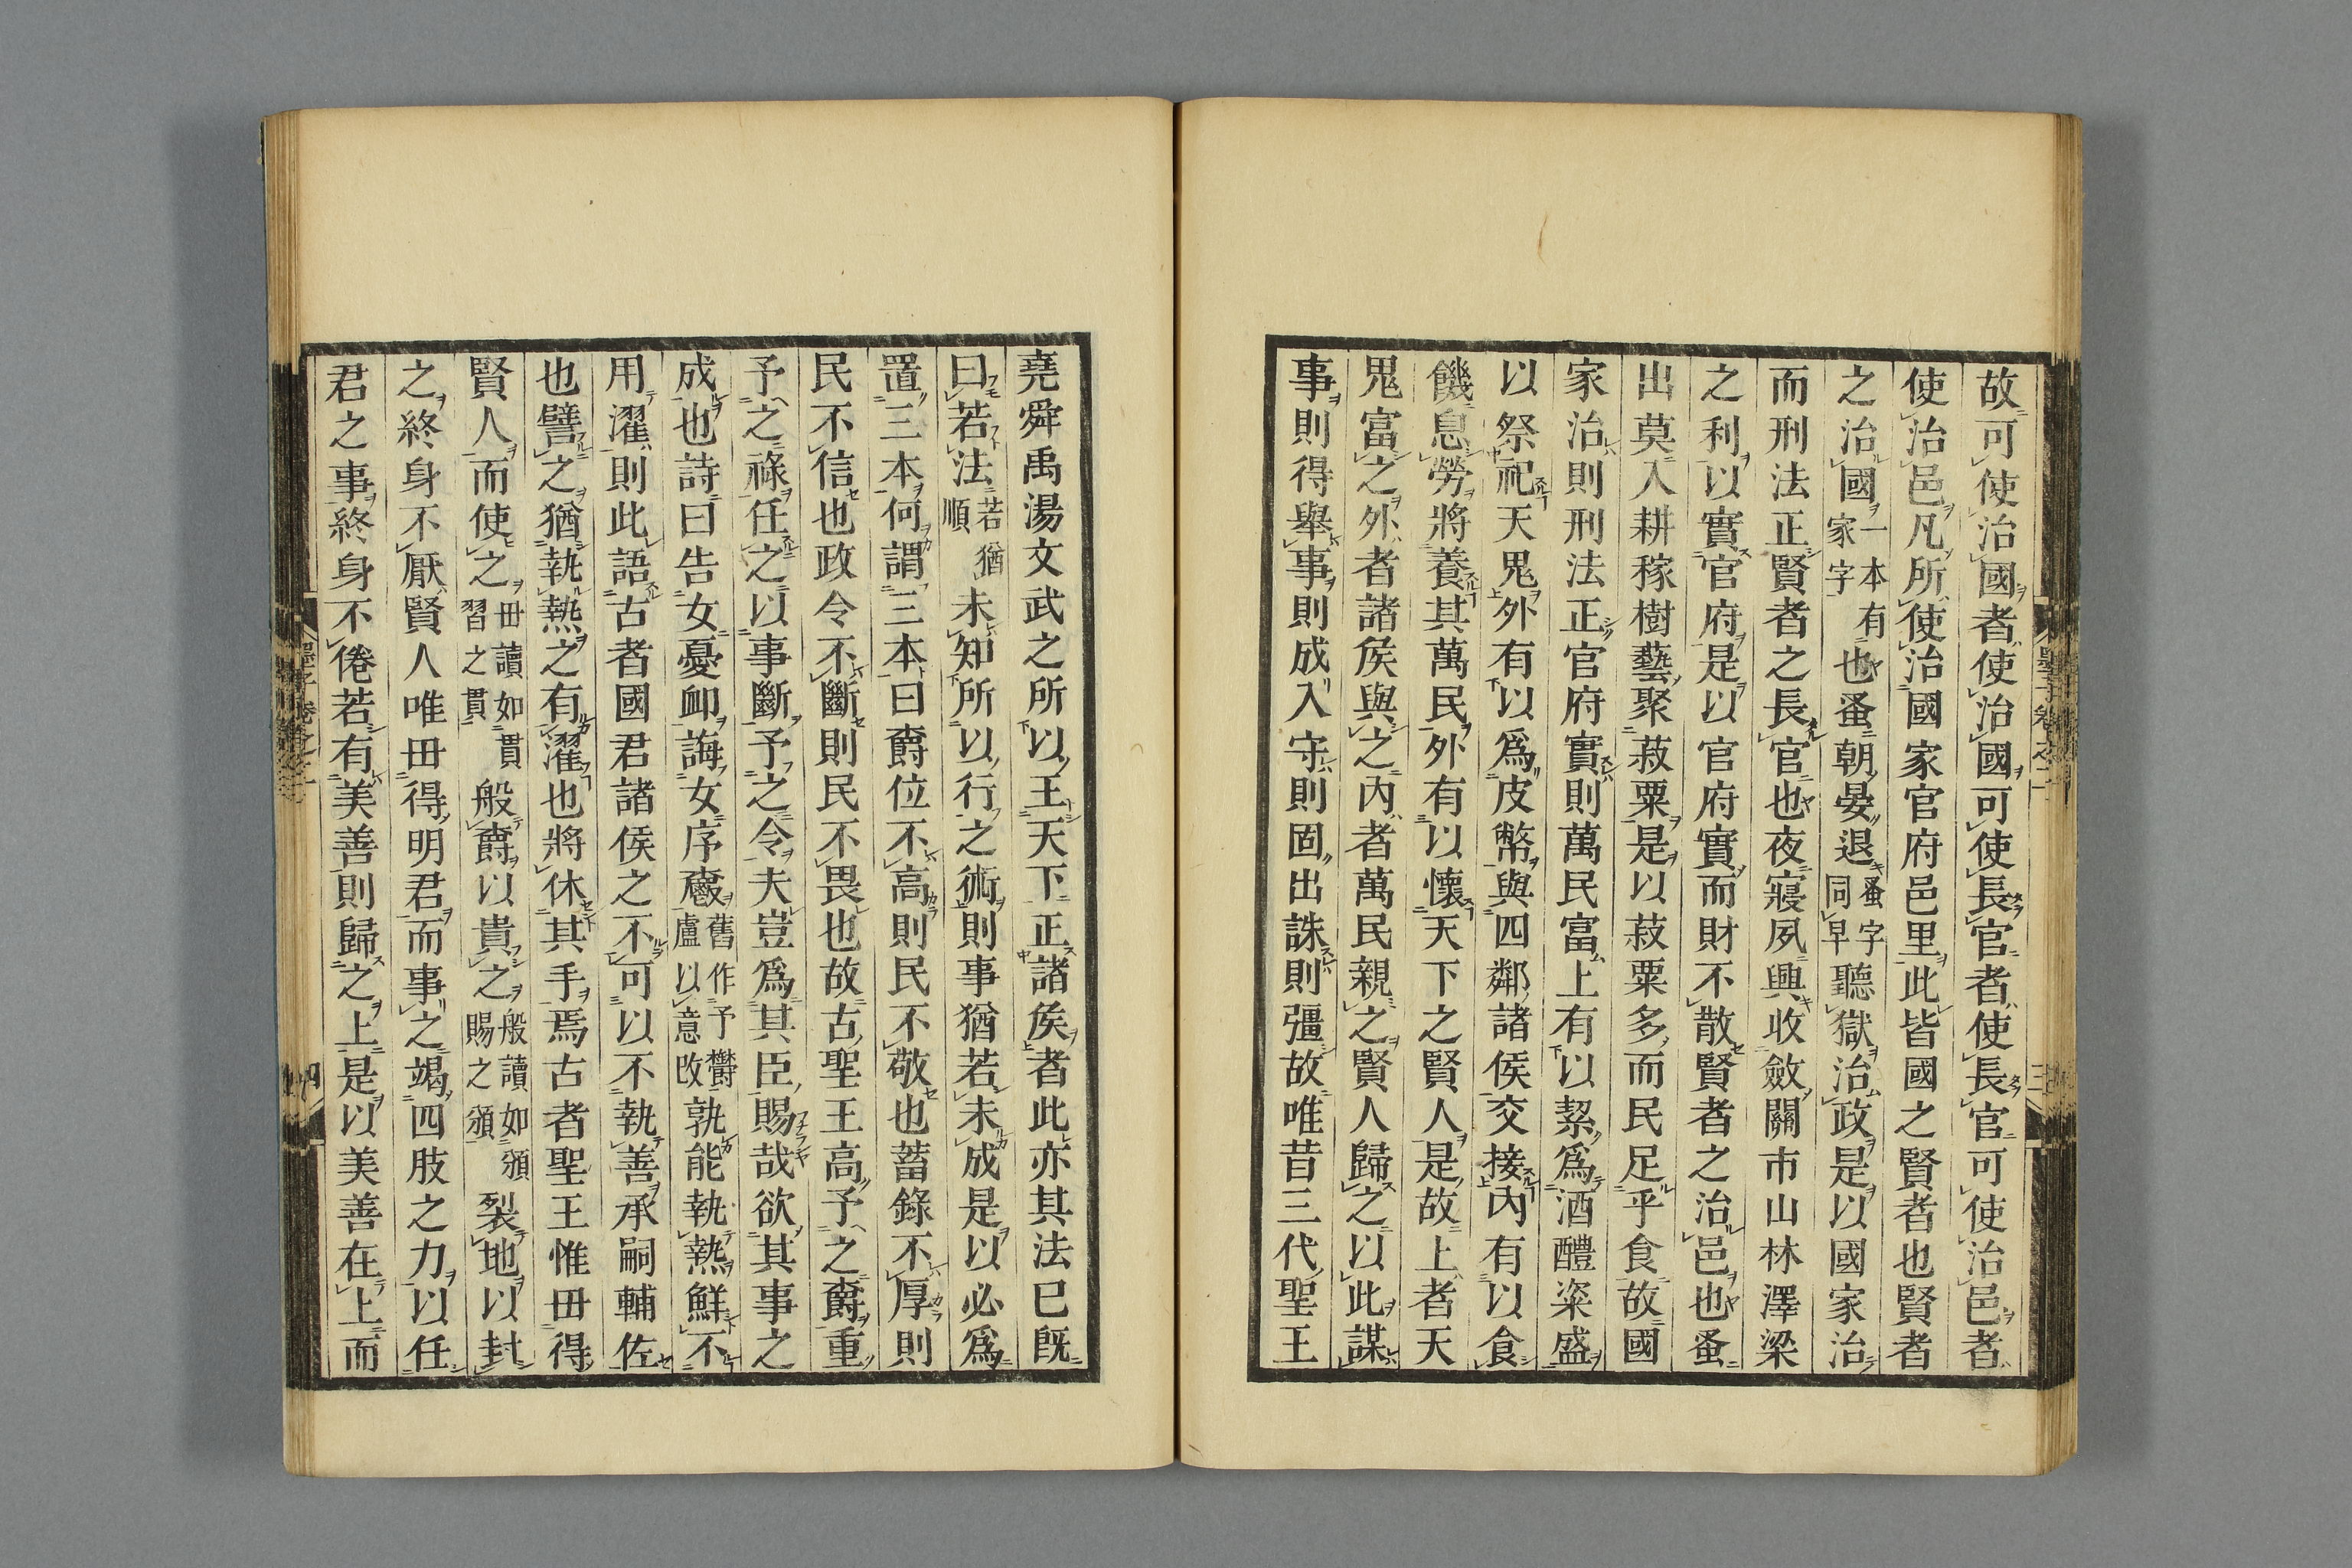 故可使治國者使治國可使長官者使長官可使治邑者
使治邑凡所使治國家官府邑里此皆國之賢者也賢者
之治國一本有家字也蚤朝晏退蚤字同早聽獄治政是以國家治
而刑法正賢者之長官也夜寢夙興收斂關市山林澤梁
之利以實官府是以官府實而財不散賢者之治邑也蚤
出莫入耕稼樹藝聚菽粟是以菽粟多而民足乎食故國
家治則刑法正官府實則萬民富上有以絜爲酒醴粢盛
以祭祀天鬼外有以爲皮幣與四鄰諸侯交接內有以食
饑息勞將養其萬民外有以懷天下之賢人是故上者天
鬼富之外者諸侯與之內者萬民親之賢人歸之以此謀
事則得舉事則成入守則固出誅則彊故唯昔三代聖王
堯舜禹湯文武之所以王天下正諸侯者此亦其法已既
曰若法若猶順未知所以行之術則事猶若未成是以必爲
置三本何謂三本曰爵位不高則民不敬也蓄錄不厚則
民不信也政令不斷則民不畏也故古聖王高予之爵重
予之祿任之以事斷予之令夫豈爲其臣賜哉欲其事之
成也詩曰告女憂卹誨女序爵舊作予欝盧以意改孰能執熱鮮不
用濯則此語古者國君諸侯之不可以不執善承嗣輔佐
也譬之猶執熱之有濯也將休其手焉古者聖王惟毌得
賢人而使之毌讀如貫習之貫般爵以貴之般讀如頒賜之頒裂地以封
之終身不厭賢人唯毌得明君而事之竭四肢之力以任
君之事終身不倦若有美善則歸之上是以美善在上而
墨子卷之二
三
墨子卷之二
四